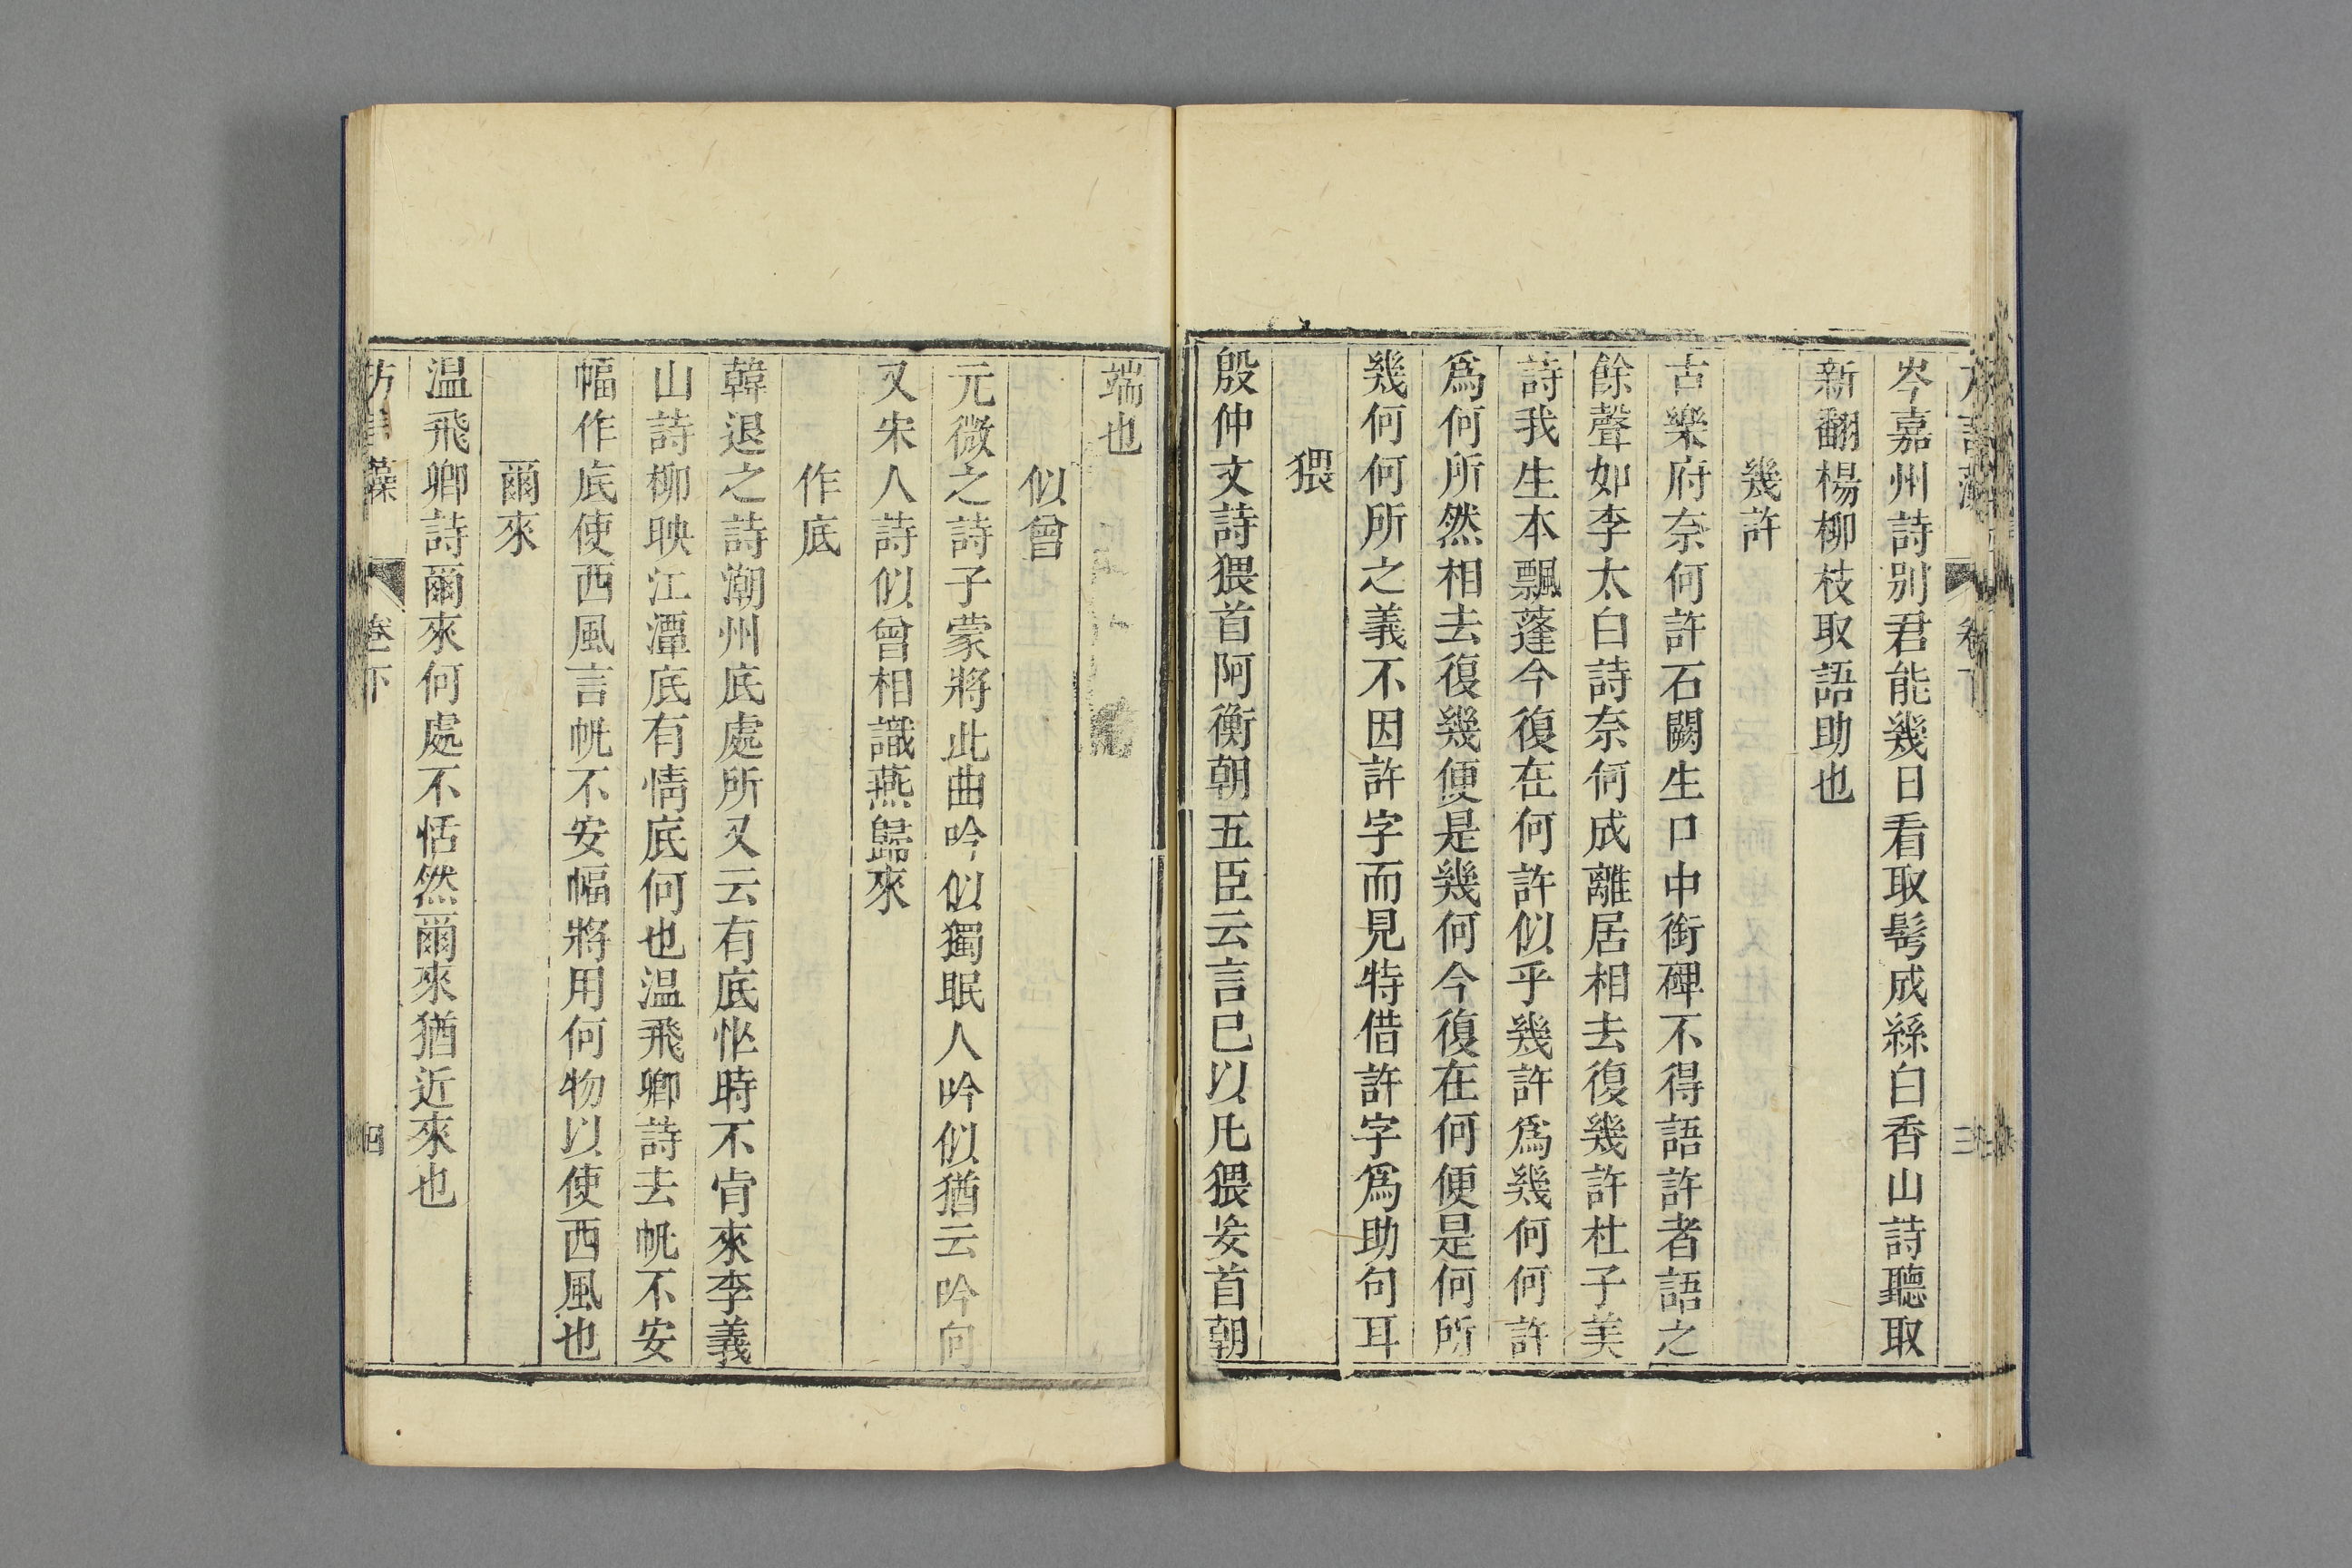 岑嘉州詩别君能幾日看取髩成絲白香山詩聽取
新翻楊柳枝取語助也
幾許
古樂府奈何許石闕生口中銜碑不得語許者語之
餘聲如李太白詩奈何成離居相去復幾許杜子美
詩我生本飄蓬今復在何許似乎幾許爲幾何何許
爲何所然相去復幾便是幾何今復在何便是何所
幾何何所之義不因許字而見特借許字爲助句耳
猥
殷仲文詩猥首阿衡朝五臣云言已以凡猥妄首朝
端也
似曾
元微之詩子蒙將此曲吟似獨眠人吟似猶云吟向
又宋人詩似曾相識燕歸來
作底
韓退之詩潮州底處所又云有底忙時不肯來李義
山詩柳映江潭底有情底何也温飛卿詩去帆不安
幅作底使西風言帆不安幅將用何物以使西風也
爾來
温飛卿詩爾來何處不恬然爾來猶近來也
卷下
四